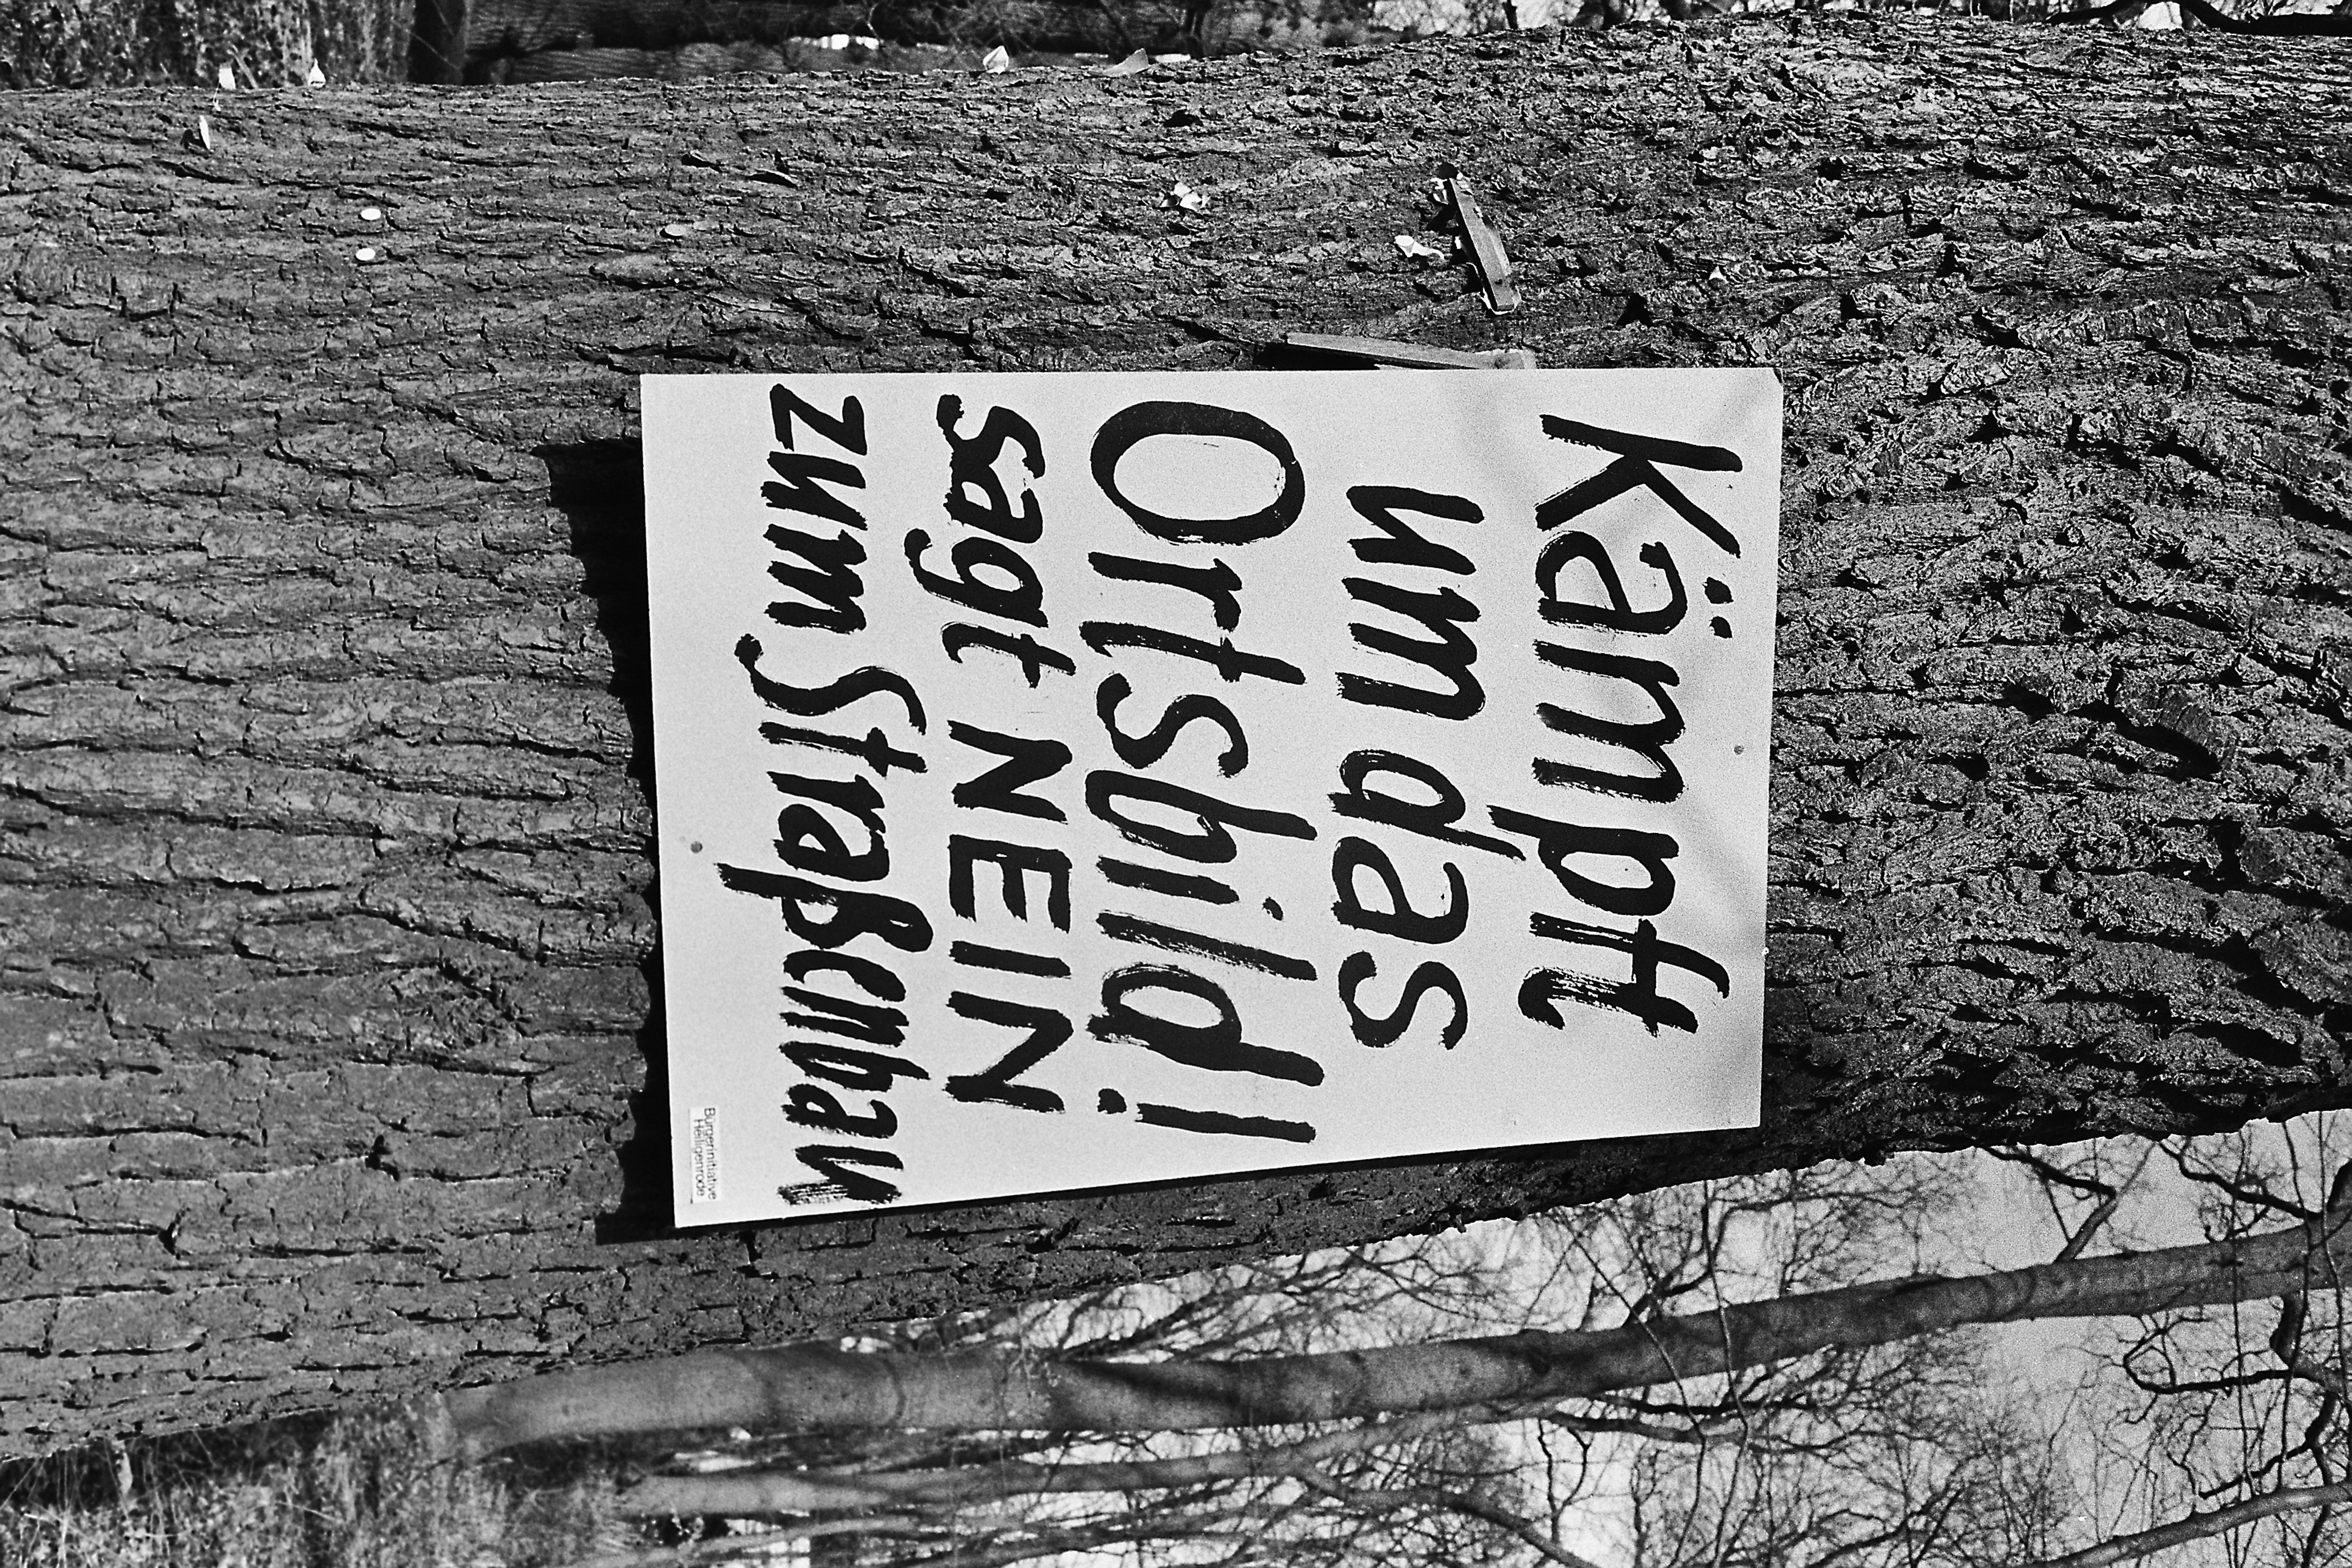 Kämpft
um das
Ortsbild!
sagt NEIN
zum Straßenbau
Bürgerinitiative
Heiligenrode